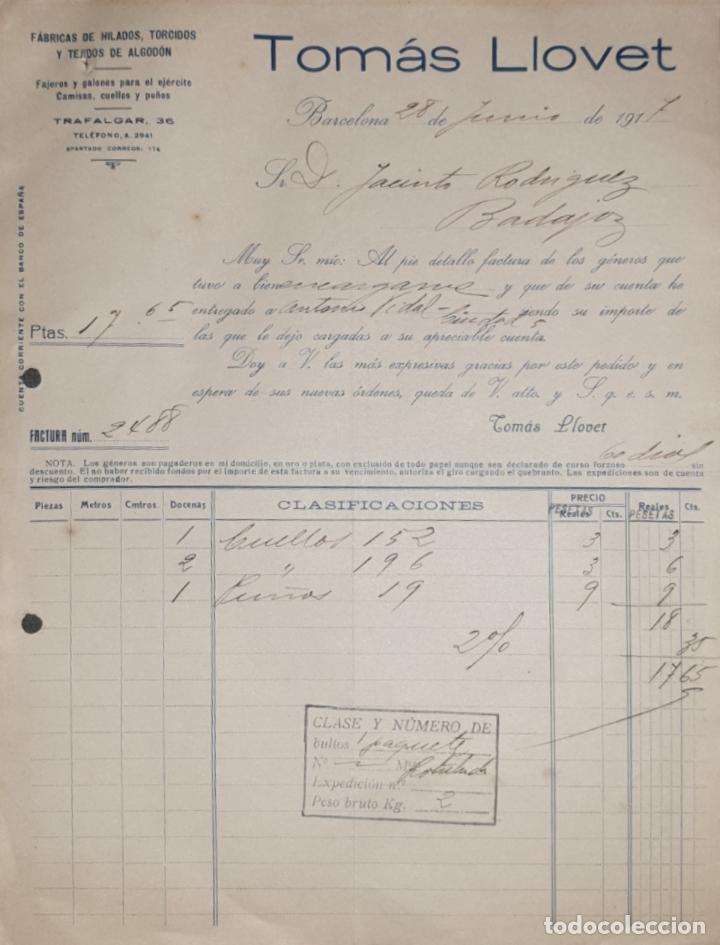 FÁBRICAS DE HILADOS, TORCIDOS
Y TEJIDOS DE ALGODÓN
Fajeros y galones para el ejército
Camisas, cuellos y puños
TRAFALGAR, 36
TELÉFONO, A. 2941
APARTADO CORREOS: 174
Tomás Llovet
Barcelona 28 de Junio de 1917
Sr. D. Jacinto Rodriguez
Badajoz
CUENTA CORRIENTE CON EL BANCO DE ESPAÑA
Muy Sr. mío: Al pie detallo factura de los géneros que
tuvo a bien encargarme y que de su cuenta he
entregado a Antonio Vidal - Ciudad siendo su importe de
Ptas. 17 65
las que le dejo cargadas a su apreciable cuenta.
Doy a V. las más expresivas gracias por este pedido y en
espera de sus nuevas órdenes, queda de V. atto. y S. q. e. s. m.
Tomás Llovet
FACTURA núm. 2488
60 dias
NOTA. Los géneros son pagaderos en mi domicilio, en oro o plata, con exclusión de todo papel aunque sea declarado de curso forzoso sin
descuento. El no haber recibido fondos por el importe de esta factura a su vencimiento, autoriza el giro cargando el quebranto. Las expediciones son de cuenta
y riesgo del comprador.
Piezas Metros Cmtros. Docenas CLASIFICACIONES PRECIO Reales PESETAS Cts. Reales PESETAS Cts.
1 Cuellos 152 3 3
2 " 196 3 6
1 Puños 19 9 9
18
2% 35
17 65
CLASE Y NÚMERO DE
bultos 1 paquete
Nº
Expedición n.º
Peso bruto Kg. 2
todocoleccion